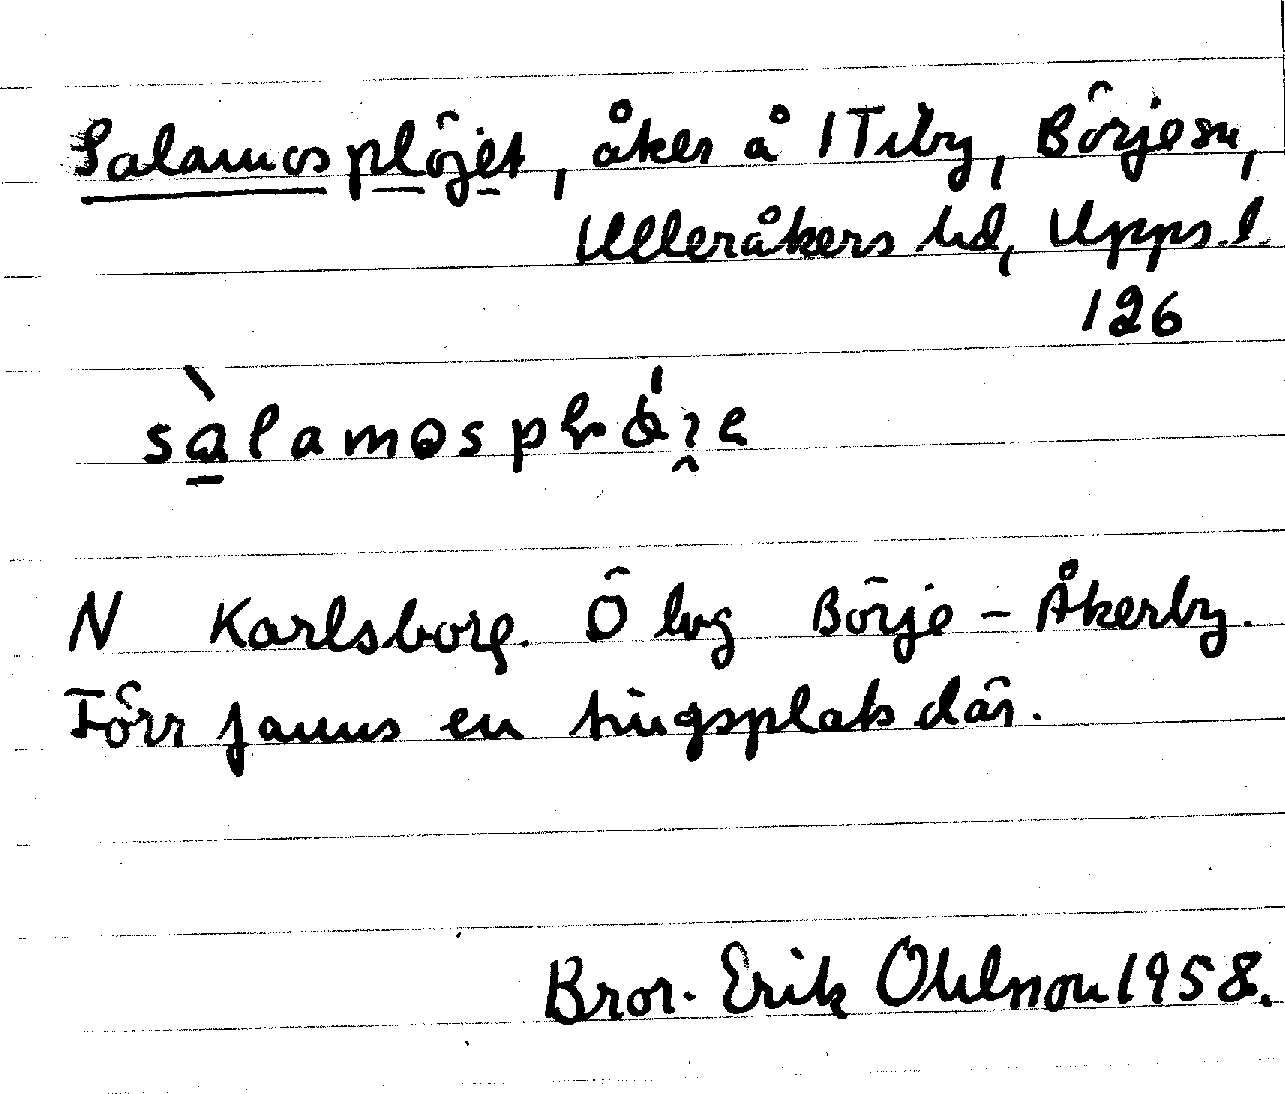 Salamosplöjet, åker å 1 Tiby, Börje sn,
Ulleråkers hd, Uppsl.
126
N Karlsborg. Ö lvg Börje - Åkerby.
Förr fanns en tingsplats där.
Bror-Erik Ohlsson 1958.